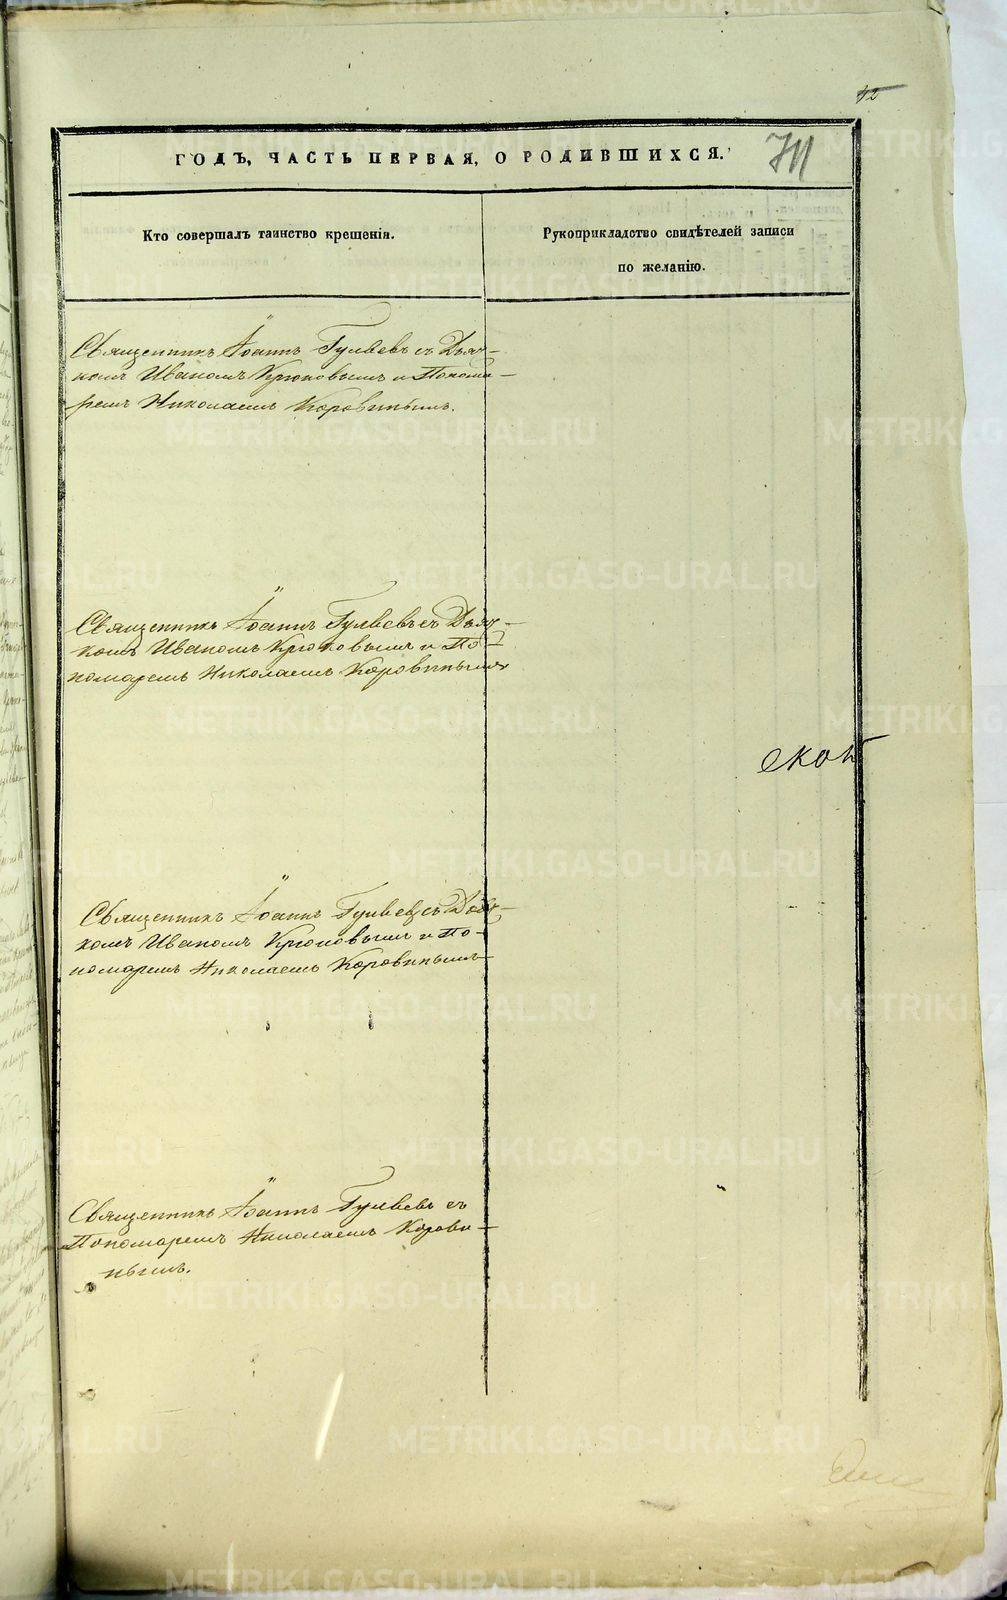 42
ГОДЪ, ЧАСТЬ ПЕРВАЯ, О РОДИВШИХСЯ.
Кто совершалъ таинство крещенія.
Рукоприкладство свидѣтелей записи
по желанію.
Священникъ Іоаннъ Гуляевъ съ Дьяч-
комъ Иваномъ Крюковымъ и Понома-
ремъ Николаемъ Коровинымъ.
Священникъ Іоаннъ Гуляевъ съ Дьяч-
комъ Иваномъ Крюковымъ и По-
номаремъ Николаемъ Коровинымъ
Священникъ Іоаннъ Гуляевъ съ Дьяч-
комъ Иваномъ Крюковымъ и По-
номаремъ Николаемъ Коровинымъ
Священникъ Іоаннъ Гуляевъ съ
Пономаремъ Николаемъ Корови-
нымъ.
METRIKI.GASO-URAL.RU